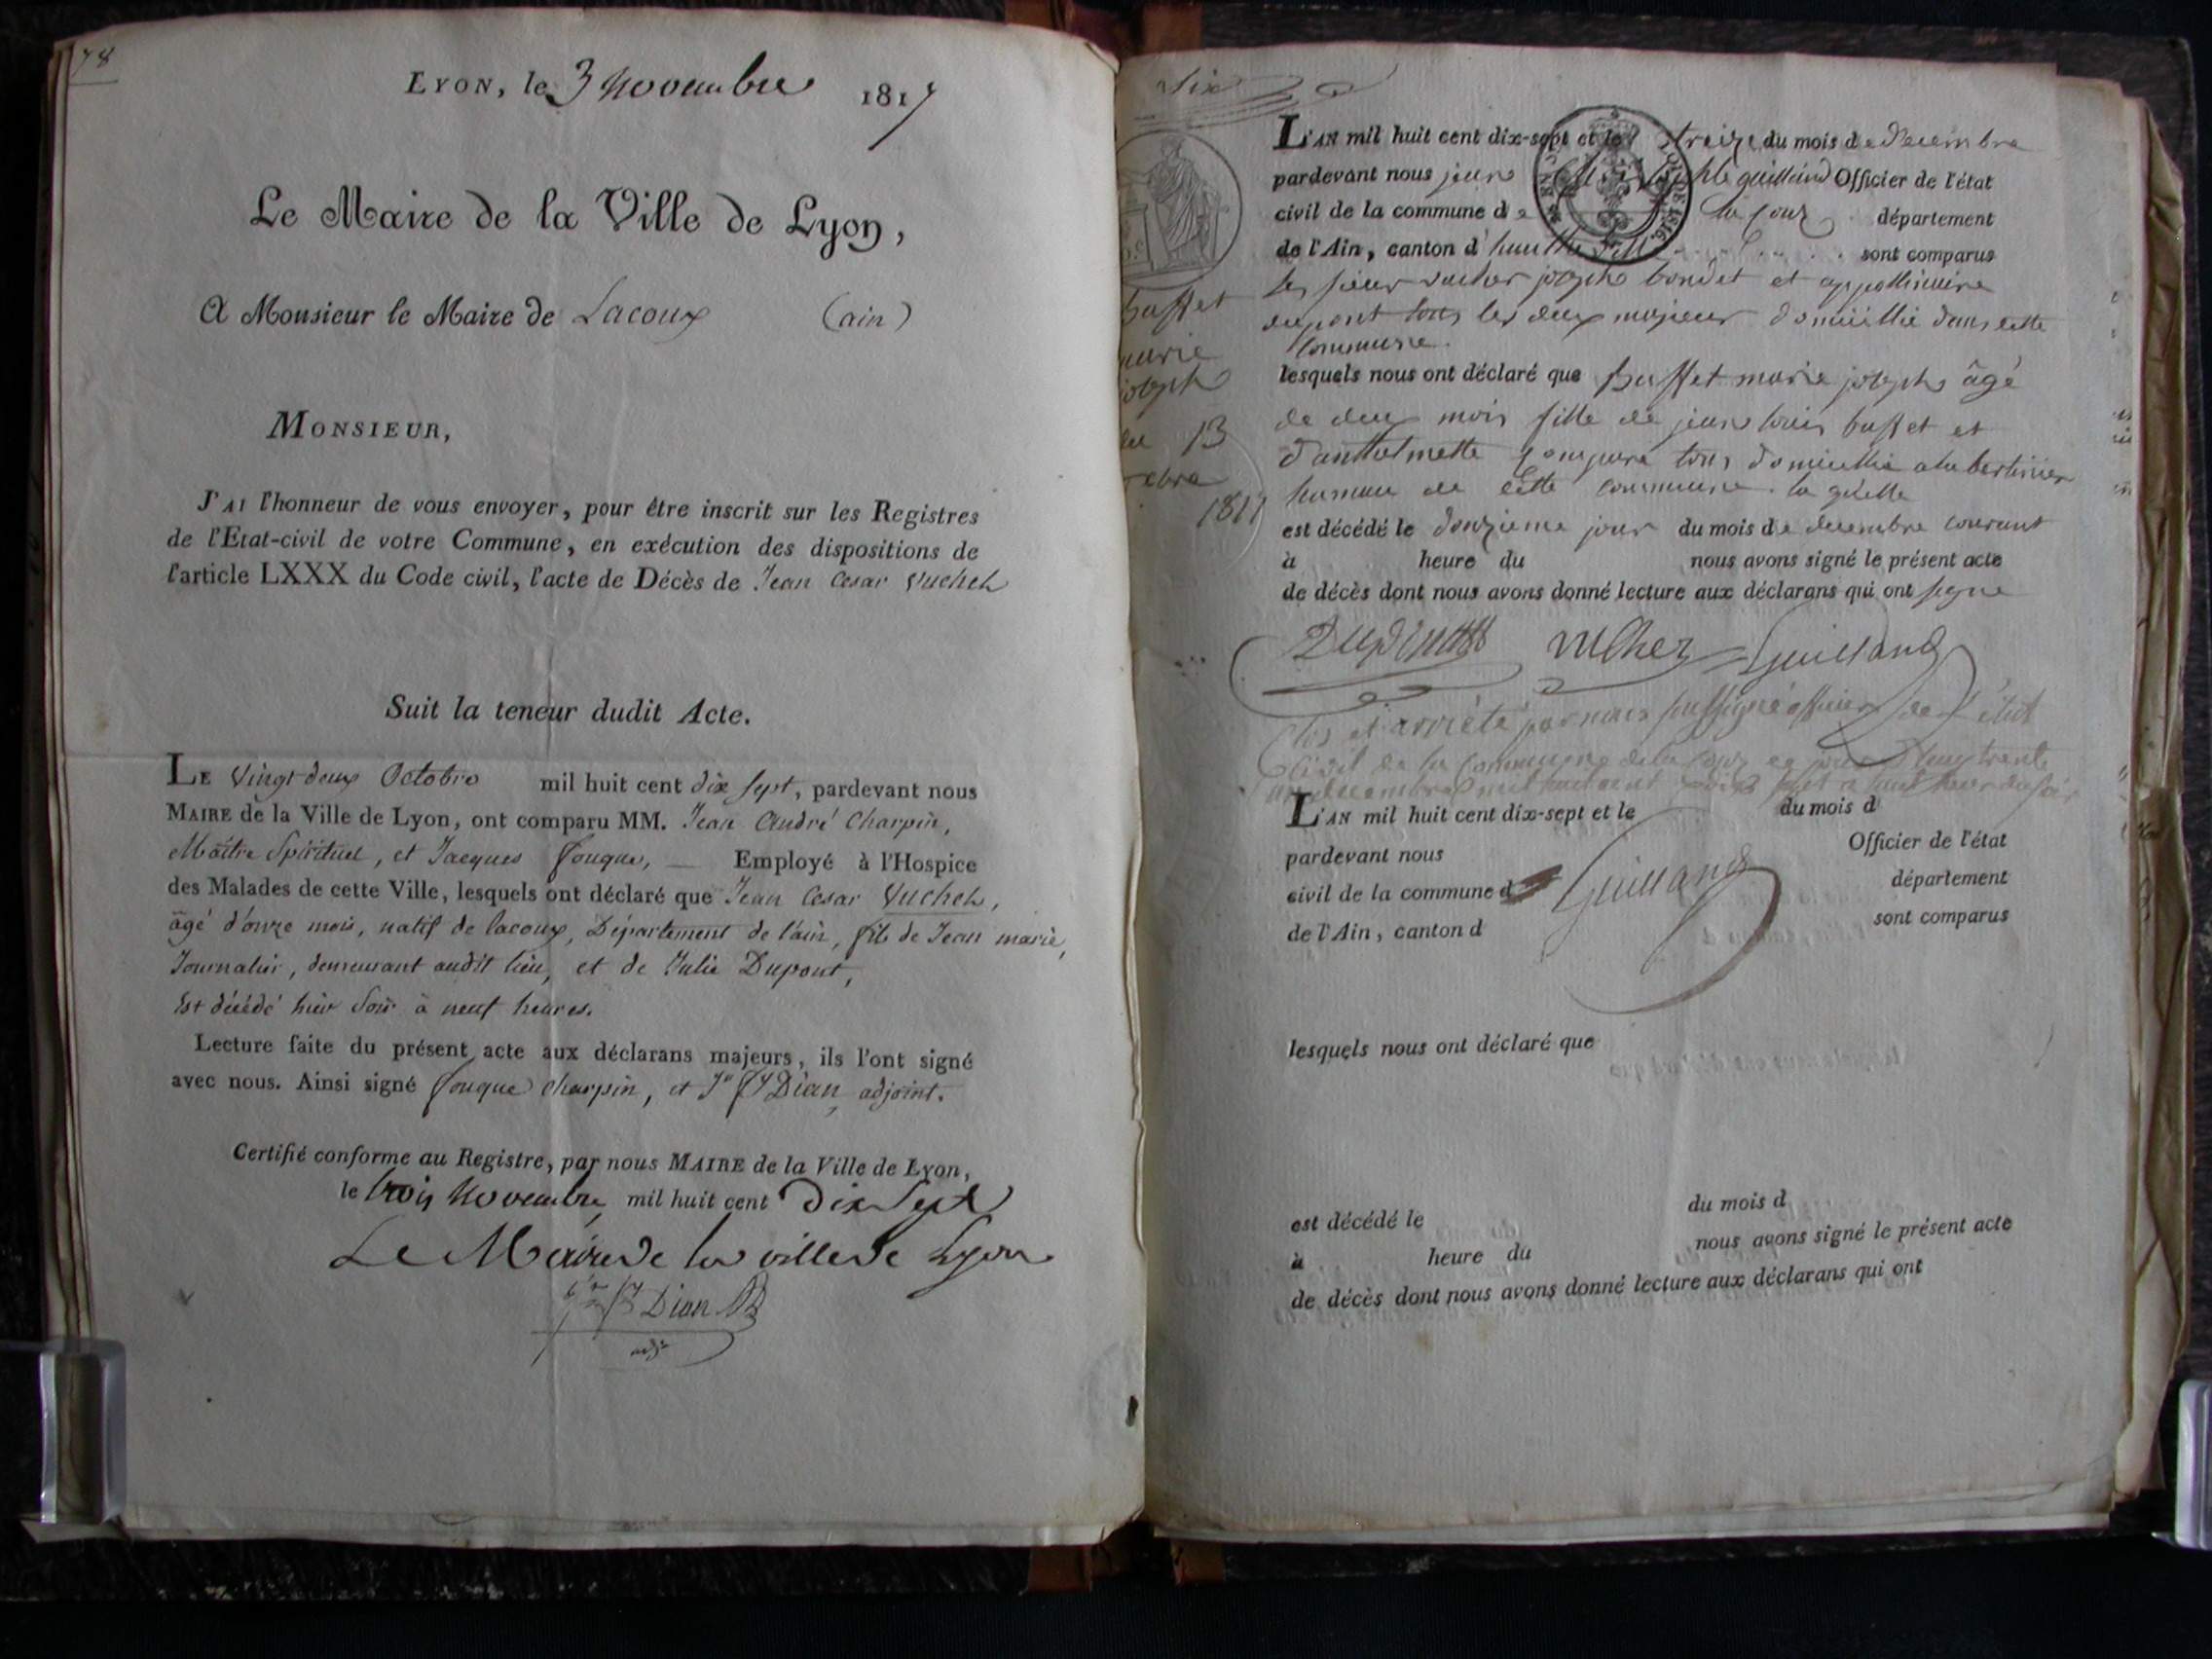 78
LYON, le 3 novembre 1817
Le Maire de la Ville de Lyon,
A Monsieur le Maire de Lacoux (ain)
MONSIEUR,
J'AI l'honneur de vous envoyer, pour être inscrit sur les Registres
de l'Etat-civil de votre Commune, en exécution des dispositions de
l'article LXXX du Code civil, l'acte de Décès de Jean Cesar Vucher
Suit la teneur dudit Acte.
LE Vingt deux Octobre mil huit cent dix sept, pardevant nous
MAIRE de la Ville de Lyon, ont comparu MM. Jean André Charpin,
Maître Spirituel, et Jacques Fouque, — Employé à l'Hospice
des Malades de cette Ville, lesquels ont déclaré que Jean Cesar Vucher,
âgé d'onze mois, natif de lacoux, Département de l'ain, fils de Jean marie,
Journalier, demeurant audit lieu, et de Julie Dupont,
Est décédé hier Soir à neuf heures.
Lecture faite du présent acte aux déclarans majeurs, ils l'ont signé
avec nous. Ainsi signé Fouque Charpin, et Dian, adjoint.
Certifié conforme au Registre, par nous MAIRE de la Ville de Lyon,
le trois Novembre mil huit cent Dix Sept
Le Maire de la ville de Lyon
Dian
adj
Six
L'AN mil huit cent dix-sept et le treize du mois de decembre
pardevant nous guilland Officier de l'état
civil de la commune de la Couz département
de l'Ain, canton d' sont comparus
les sieur vucher joseph bondet et appollinaire
dupont tous les deux majeur domicillié dans cette
commune.
lesquels nous ont déclaré que buffet marie joseph âgé
de deux mois fille de jean louis buffet et
tous domicillié
hameau de cette commune. la quelle
est décédé le douzieme jour du mois de decembre courant
à heure du nous avons signé le présent acte
de décès dont nous avons donné lecture aux déclarans qui ont signe
buffet
marie
joseph
du 13
1817
Dupont vucher Guilland
Clos et arrété par nous soussigné officier de l'état
civil de la commune de la Couz ce jour d'huy trente
un decembre mil huit cent dix sept a huit heur du soir
L'AN mil huit cent dix-sept et le du mois d
pardevant nous Officier de l'état
civil de la commune d Guilland département
de l'Ain, canton d sont comparus
lesquels nous ont déclaré que
est décédé le du mois d
à heure du nous avons signé le présent acte
de décès dont nous avons donné lecture aux déclarans qui ont